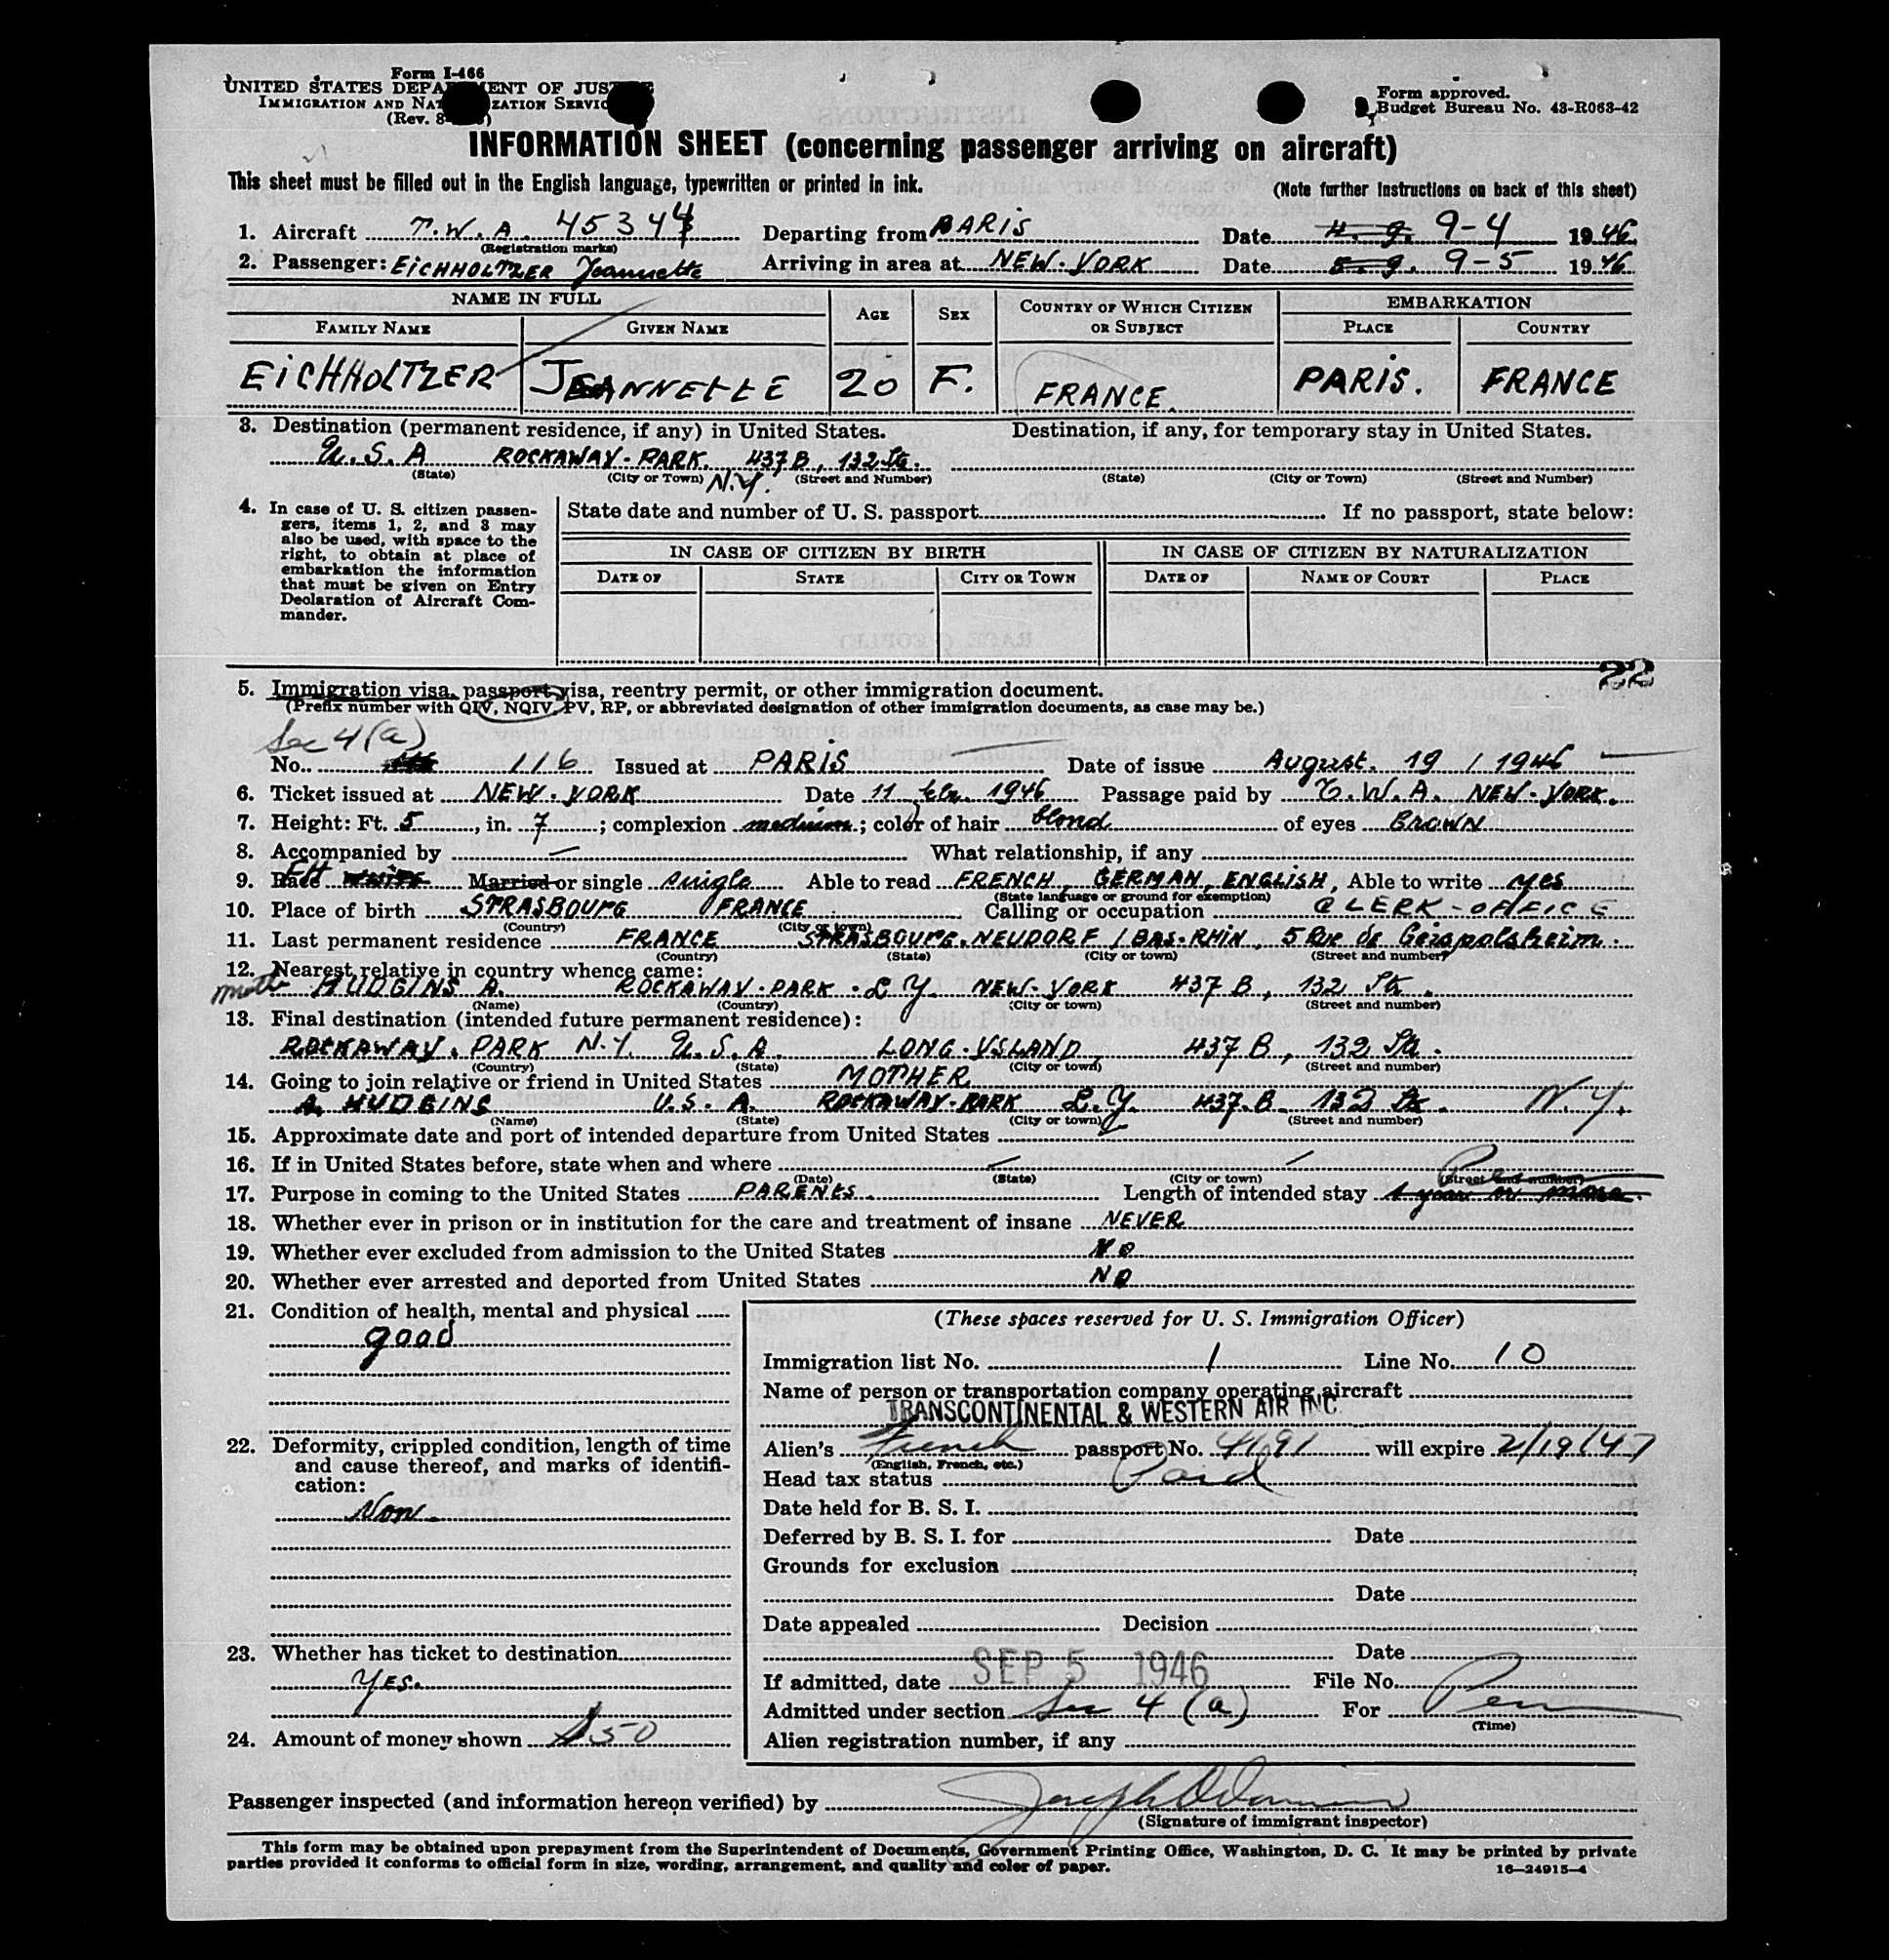 Form I-466
UNITED STATES DEPARTMENT OF JUSTICE
IMMIGRATION AND NATURALIZATION SERVICE
(Rev. 8-
Form approved.
Budget Bureau No. 43-R063-42
INFORMATION SHEET (concerning passenger arriving on aircraft)
This sheet must be filled out in the English language, typewritten or printed in ink. (Note further instructions on back of this sheet)
1. Aircraft T.W.A. 45344 Departing from PARIS Date 9-4 1946
(Registration marks)
2. Passenger: EICHHOLTZER Jeannette Arriving in area at NEW-YORK Date 9-5 1946
NAME IN FULL AGE SEX COUNTRY OF WHICH CITIZEN OR SUBJECT EMBARKATION
FAMILY NAME GIVEN NAME PLACE COUNTRY
EICHHOLTZER JEANNETTE 20 F. FRANCE. PARIS. FRANCE
3. Destination (permanent residence, if any) in United States. Destination, if any, for temporary stay in United States.
U.S.A ROCKAWAY-PARK. 437B, 132 St.
(State) (City or Town) N.Y. (Street and Number) (State) (City or Town) (Street and Number)
4. In case of U. S. citizen passengers, items 1, 2, and 3 may also be used, with space to the right, to obtain at place of embarkation the information that must be given on Entry Declaration of Aircraft Commander.
State date and number of U. S. passport If no passport, state below:
IN CASE OF CITIZEN BY BIRTH IN CASE OF CITIZEN BY NATURALIZATION
DATE OF STATE CITY OR TOWN DATE OF NAME OF COURT PLACE
22
5. Immigration visa, passport visa, reentry permit, or other immigration document.
(Prefix number with QIV, NQIV, PV, RP, or abbreviated designation of other immigration documents, as case may be.)
Sec 4(a)
No. 116 Issued at PARIS Date of issue August. 19 / 1946
6. Ticket issued at NEW-YORK Date 11 1946 Passage paid by T.W.A. NEW-YORK.
7. Height: Ft. 5, in. 7; complexion medium; color of hair blond of eyes BROWN
8. Accompanied by — What relationship, if any
9. Race WHITE Married or single single Able to read FRENCH, GERMAN, ENGLISH, Able to write yes
(State language or ground for exemption)
10. Place of birth STRASBOURG FRANCE Calling or occupation CLERK-OFFICE
(Country) (City or town)
11. Last permanent residence FRANCE STRASBOURG-NEUDORF / BAS-RHIN, 5 Rue de Geispolsheim.
(Country) (State) (City or town) (Street and number)
12. Nearest relative in country whence came:
HUDGINS A. ROCKAWAY-PARK. L.Y. NEW-YORK 437 B, 132 St.
(Name) (Country) (City or town) (Street and number)
13. Final destination (intended future permanent residence):
ROCKAWAY. PARK N.Y. U.S.A. LONG-YSLAND, 437 B, 132 St.
(Country) (State) (City or town) (Street and number)
14. Going to join relative or friend in United States MOTHER
A. HUDGINS U.S.A. ROCKAWAY-PARK L.Y. 437.B. 132 St. N.Y.
(Name) (State) (City or town) (Street and number)
15. Approximate date and port of intended departure from United States
16. If in United States before, state when and where
(Date) (State) (City or town) (Street and number)
17. Purpose in coming to the United States PARENTS. Length of intended stay 1 year or more.
18. Whether ever in prison or in institution for the care and treatment of insane NEVER
19. Whether ever excluded from admission to the United States NO
20. Whether ever arrested and deported from United States NO
21. Condition of health, mental and physical
good
22. Deformity, crippled condition, length of time and cause thereof, and marks of identification:
Non
23. Whether has ticket to destination
YES.
24. Amount of money shown $50
(These spaces reserved for U. S. Immigration Officer)
Immigration list No. 1 Line No. 10
Name of person or transportation company operating aircraft
TRANSCONTINENTAL & WESTERN AIR INC.
Alien's French passport No. 4191 will expire 2/19/47
(English, French, etc.)
Head tax status Paid
Date held for B. S. I.
Deferred by B. S. I. for Date
Grounds for exclusion
Date
Date appealed Decision
Date
If admitted, date SEP 5 1946 File No.
Admitted under section Sec 4 (a) For Perm
(Time)
Alien registration number, if any
Passenger inspected (and information hereon verified) by
(Signature of immigrant inspector)
This form may be obtained upon prepayment from the Superintendent of Documents, Government Printing Office, Washington, D. C. It may be printed by private
parties provided it conforms to official form in size, wording, arrangement, and quality and color of paper. 16—24915-4